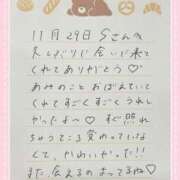 11月29日 Sさんの
久しぶりに会いに来て
くれてありがとう♡
あみのこと おぼえていて
くれてすごくすごくうれし
かったよ〜♡ すぐ照れ
ちゃうてる変わっていな
くて、かわいかった!!
また会えるのまってるね♡